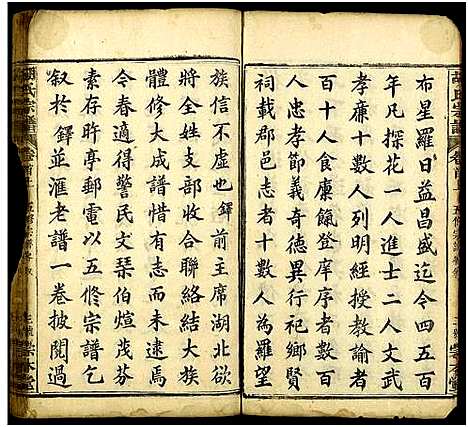 布星羅日益昌盛迄今四五百
年凡探花一人進士二人文武
孝廉十數人列明經授教諭者
百十人膺孝節義奇德異行祀鄉賢
祠載郡邑志者十數人為羅望
族信不虛也鐸前主席湖北欲
將全姓支部收合聯絡結大族
體修大成譜惜有志而未逮焉
今春適得警民文棻伯煊茂芬
素存時亭郵電以五修宗譜乞
敍於鐸並滙老譜一卷披閱過
胡氏宗譜
卷首上
五修宗譜